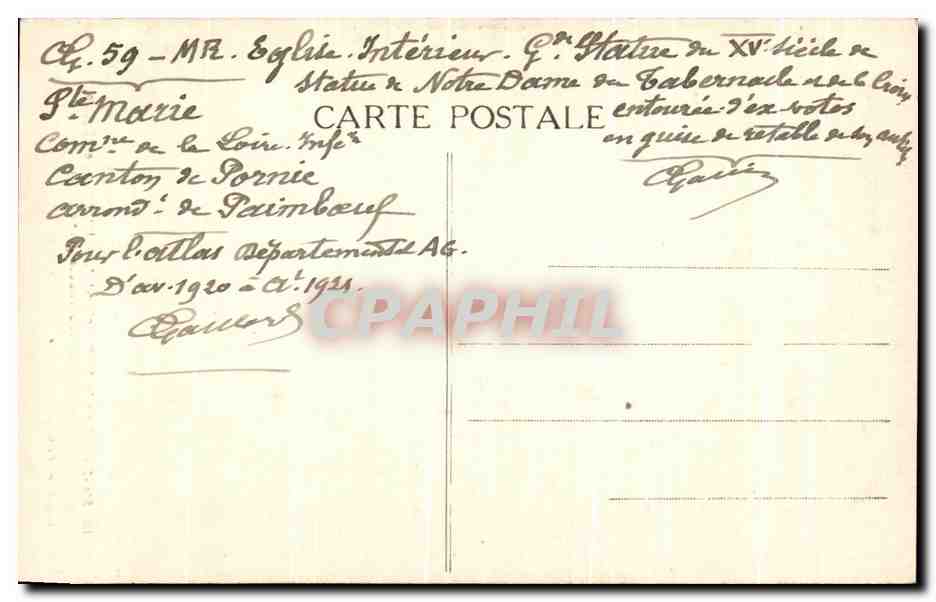 59 - MR. Eglise. Intérieur. Gde Statue du XVe siècle de
Statue de Notre Dame du Tabernacle et de la Croix
Pte Marie
CARTE POSTALE
entourée d'ex-votos
Comne de la Loire Infre
en guise de retable de
Canton de Pornic
arrondt de Paimbœuf
Pour l'atlas Départemental AG.
D'av. 1920 à At 1921.
CPAPHIL